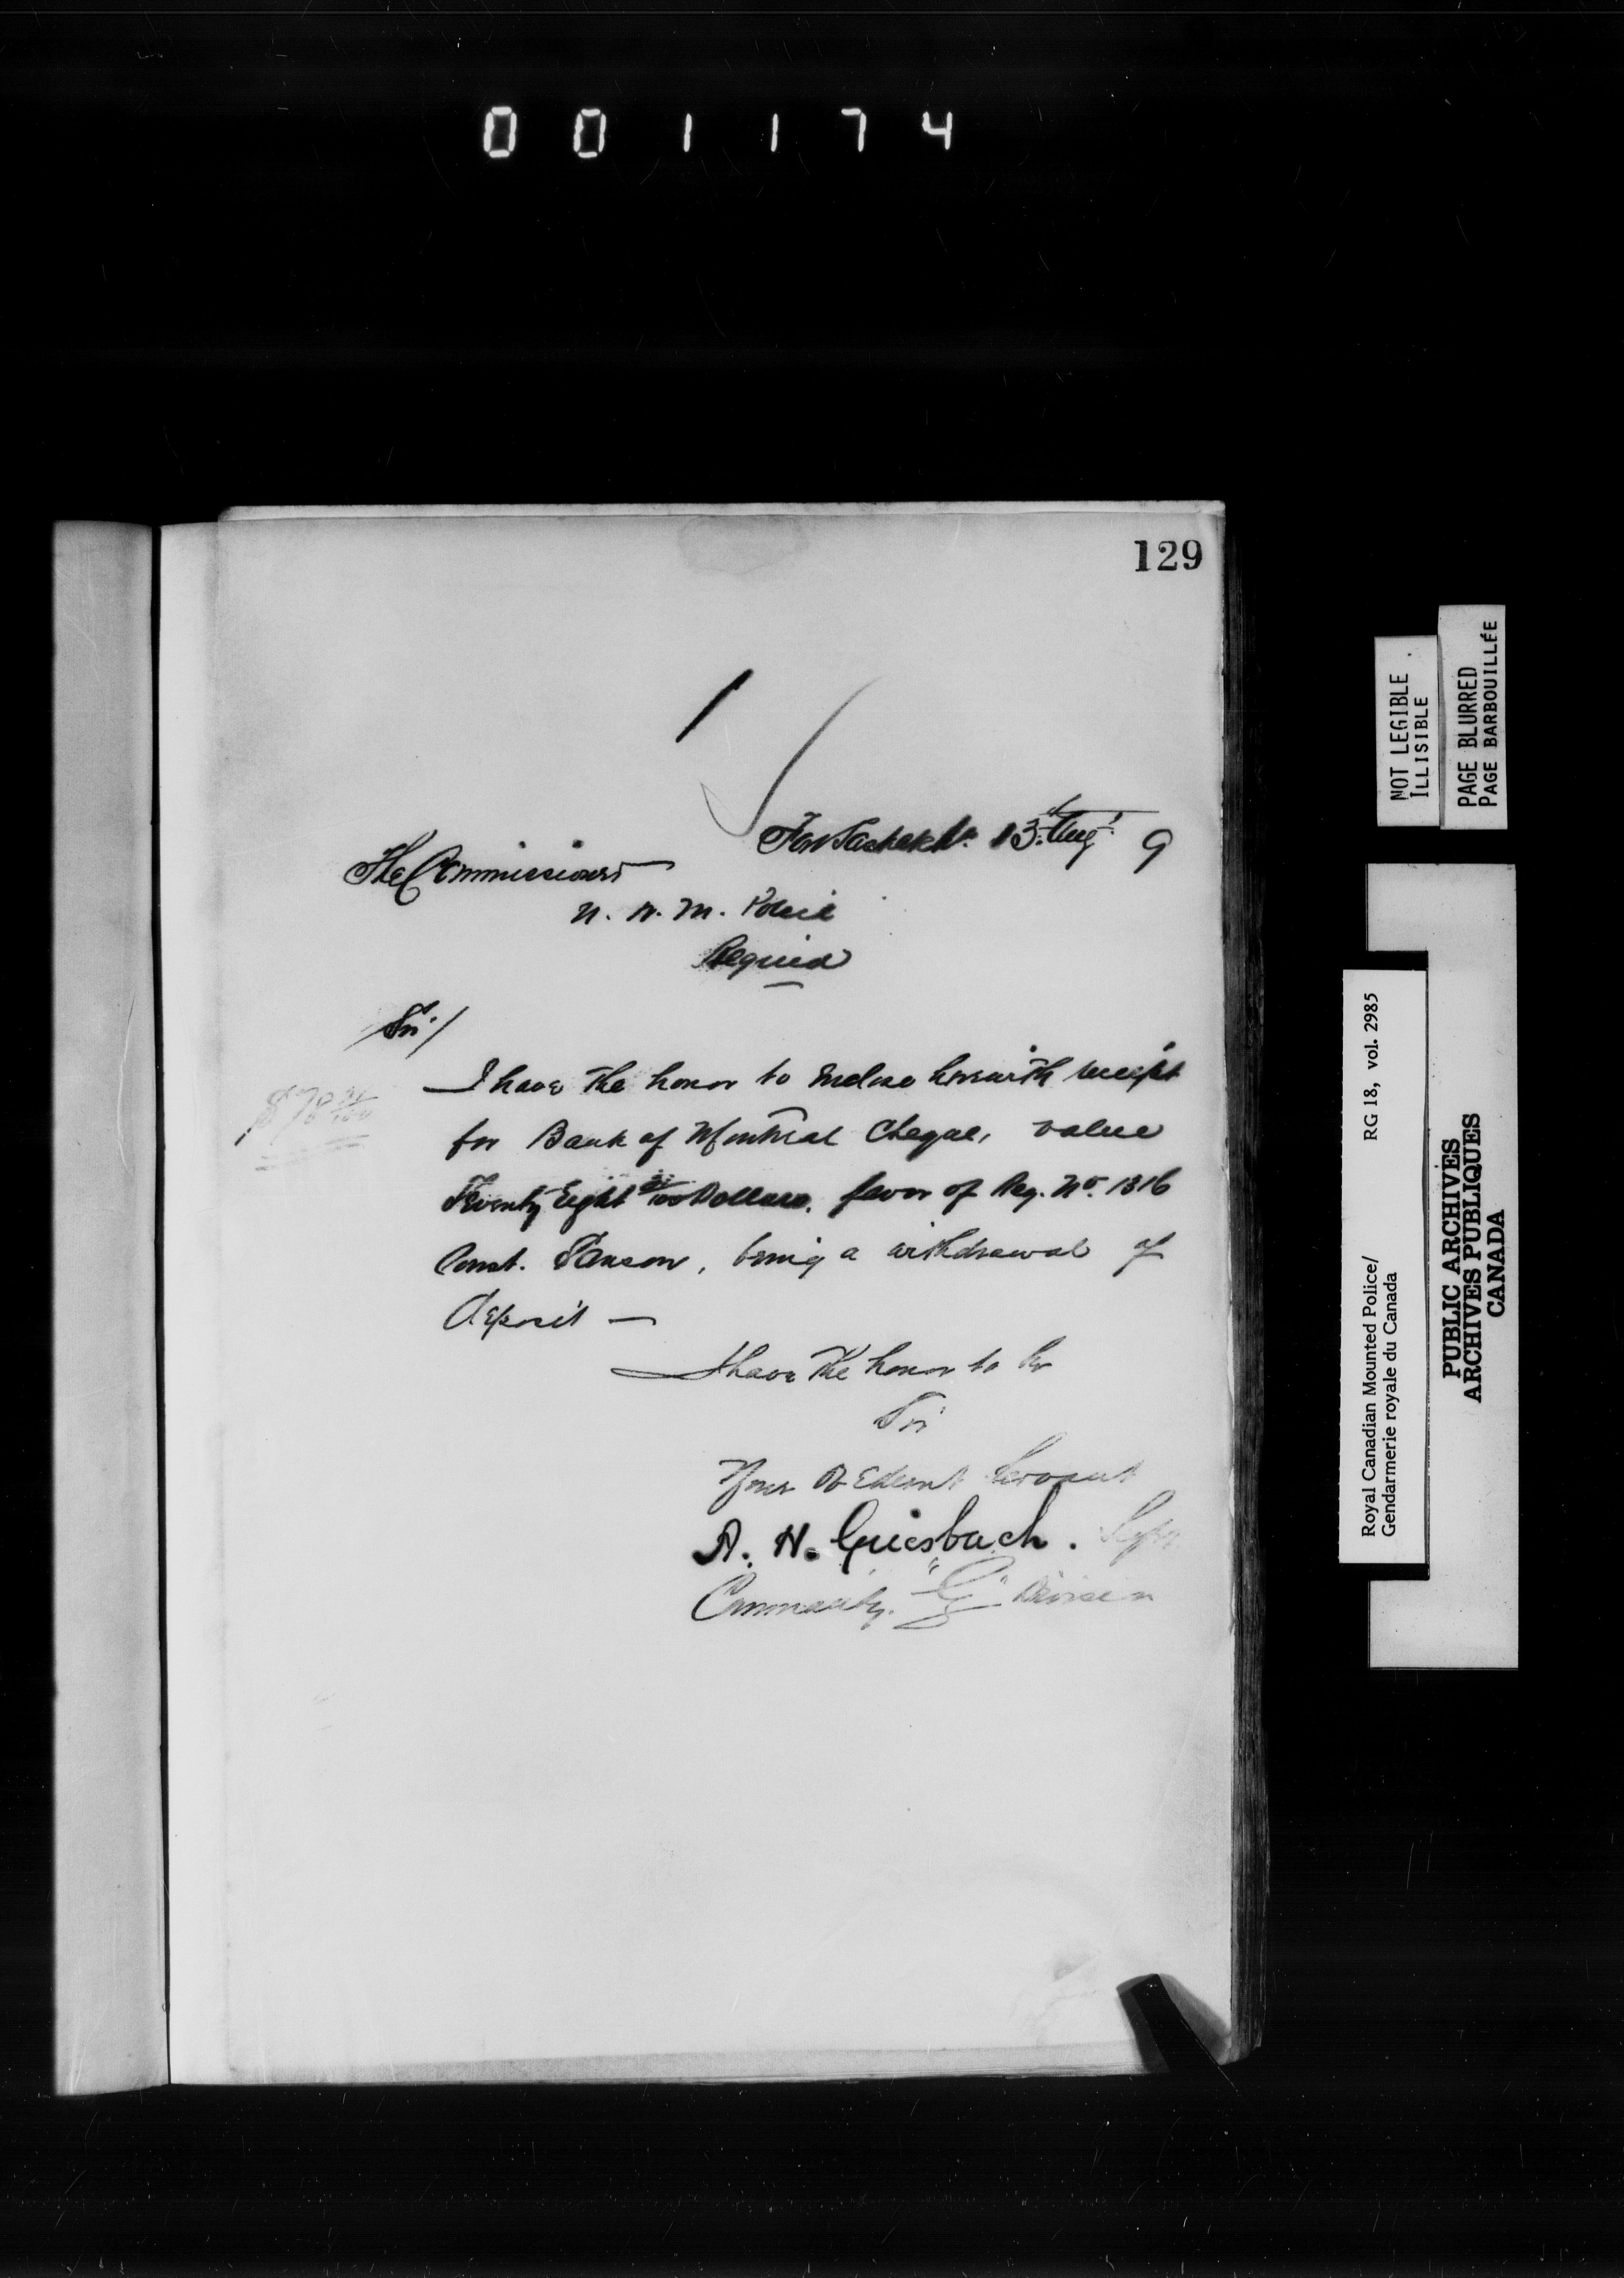 001174
129
Fort Saskat. 13th Augt 9
The Commissioner
N. W. M. Police
Regina
Sir /
I have the honor to Enclose herewith receipt
for Bank of Montreal Cheque, value
Seventy Eight 31/100 Dollars, favor of Reg. No. 1316
Const. , being a withdrawal of
deposit —
$78 31/100
I have the honor to be
Sir
Your Obedient Servant
A. H. Griesbach. Supt.
Commandg. "G" Division
NOT LEGIBLE
ILLISIBLE
PAGE BLURRED
PAGE BARBOUILLÉE
Royal Canadian Mounted Police/ RG 18, vol. 2985
Gendarmerie royale du Canada
PUBLIC ARCHIVES
ARCHIVES PUBLIQUES
CANADA